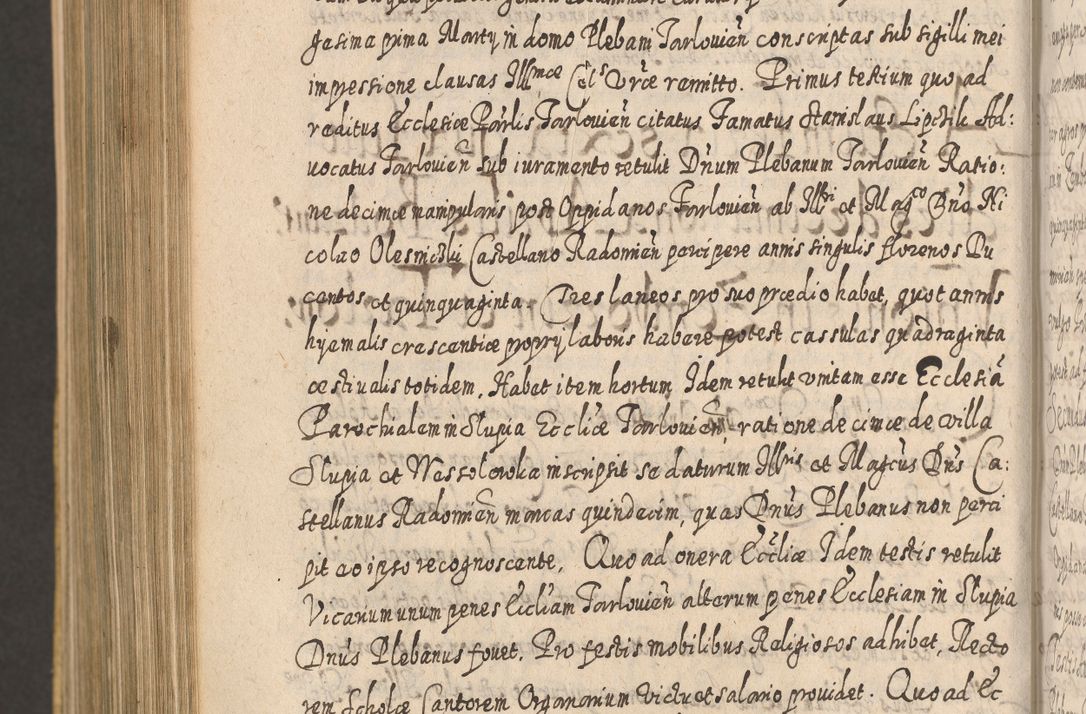 gesima prima Marty in domo Plebani Tarlovień conscriptas sub sigilli mei
impressione clausas Illmæ Celˢ Vræ remitto. Primus testium quo ad
reditus Ecclesiæ Parlis Tarlovień citatus Famatus Stanislaus Lipcski Ad:
vocatus Tarlovień sub iuramento retulit Dnum Plebanum Tarlovień Ratio:
ne decimæ manipularis post Oppidanos Tarlovień ab Illri et Magco Dno Ni
colao Olesnicski Castellano Radomień percipere annis singulis florenos Du
centos et quinquaginta. Tres laneos pro suo prædio habet, quot annis
hyemalis crescentiæ propry laboris habere potest cassulas quadraginta
æstiualis totidem. Habet item hortum Idem retulit vnitam esse Ecclesiā
Parochialem in Slupia Eccliæ Tarlovień, ratione decimæ de villa
Slupia et Wessolowka inscripsit se daturum Illris et Magcus Dns Ca:
stellanus Radomień marcas quindecim, quas Dnus Plebanus non perci
pit eo ipso recognoscente. Quo ad onera Eccliæ Idem testis retulit
Vicarium unum penes Eccliam Tarlovień alterum penes Ecclesiam in Slupia
Dnus Plebanus fovet. Pro festis mobilibus Religiosos adhibet, Recto
rem Scholæ Cantorem Organarium victu et salario prouidet. Quo ad Ec